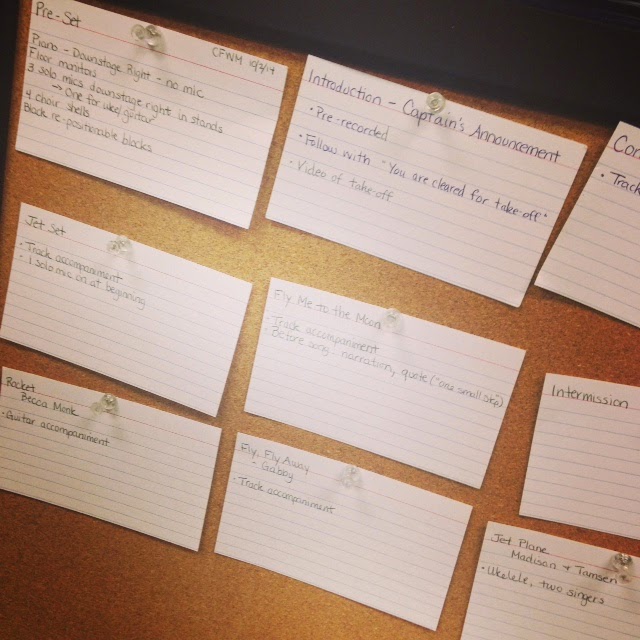 Pre-Set
CFWM 10/3/14
Piano - Downstage Right - no mic
Floor monitors
3 solo mics downstage right in stands
→ One for uke/guitar
4 choir shells
Black re-positionable blocks
Introduction - Captain's Announcement
• Pre-recorded
• Follow with "You are cleared for take-off"
• Video of take-off
• Track
Jet Set
- Track accompaniment
- 1 solo mic on at beginning
Fly Me to the Moon
- Track accompaniment
- Before song - narration, quote ("one small step)
Intermission
Rocket
Becca Monk
- Guitar accompaniment
Fly, Fly Away
- Gabby
- Track accompaniment
Jet Plane
Madison + Tamsen
- Ukulele, two singers